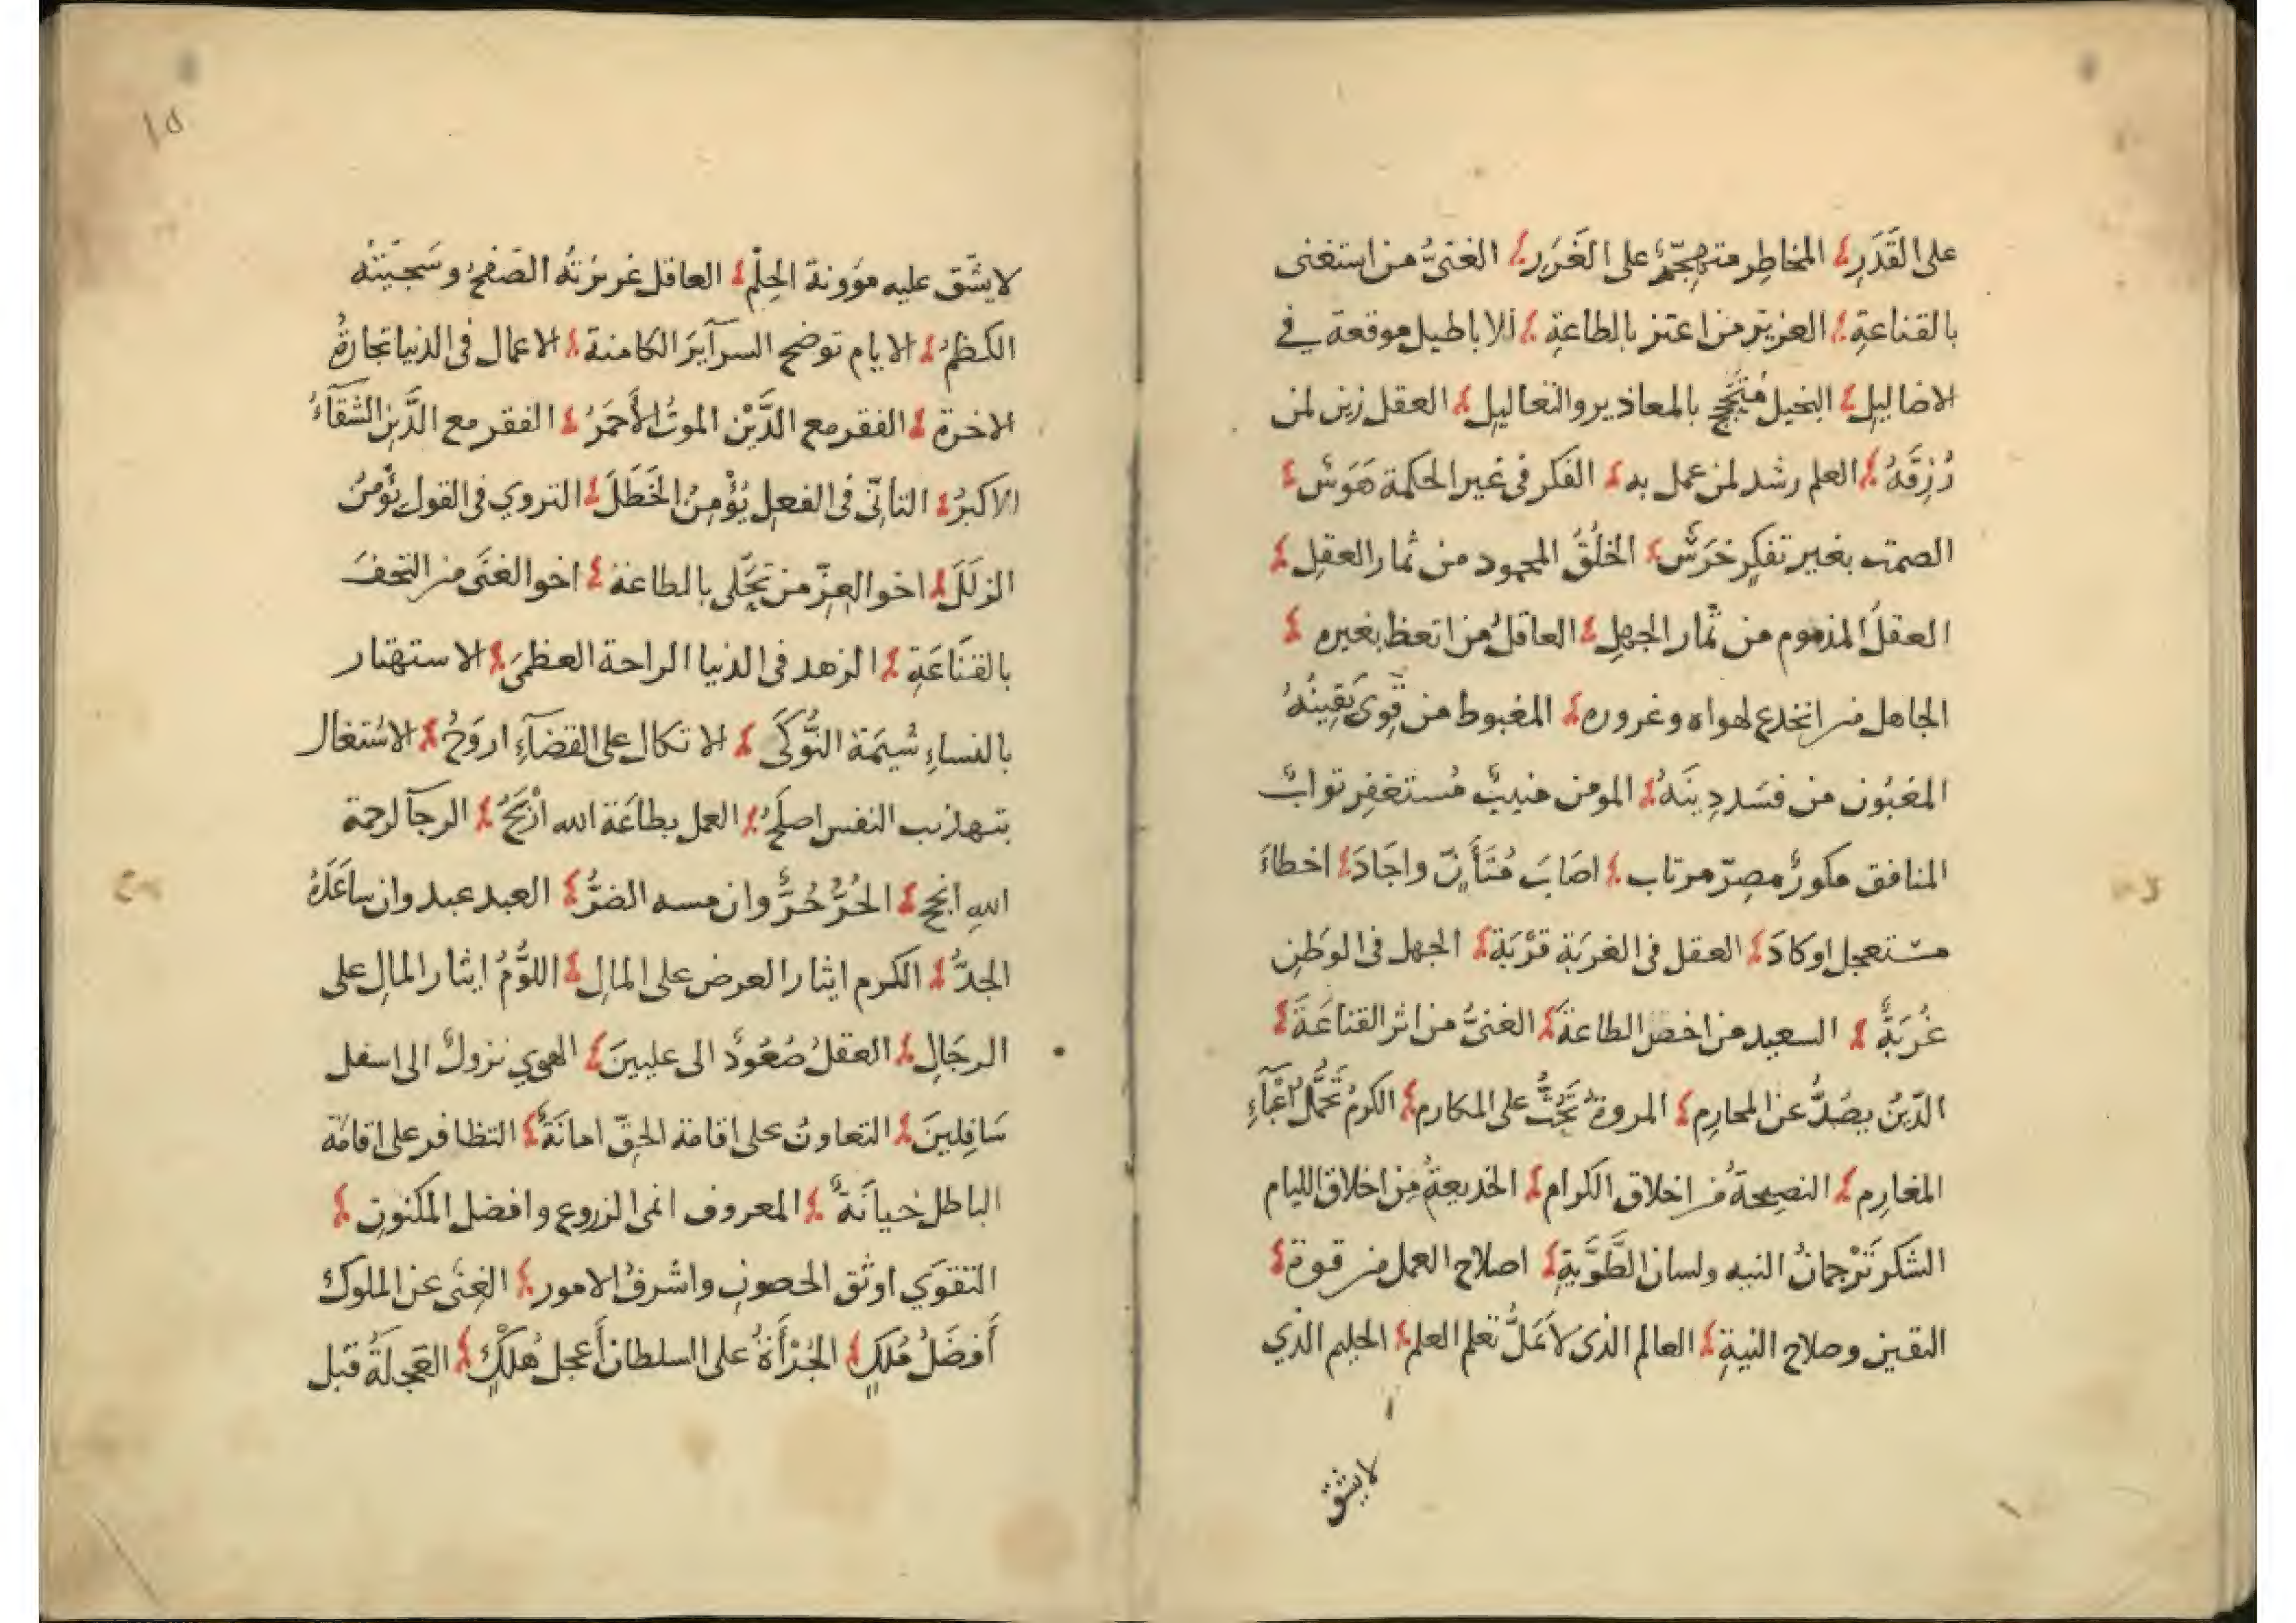 على القَدَرِ المخاطر متهجّم على الغَرَرِ الغنىُّ من استغنى
بالقناعةِ العزيز من اعتز بالطاعةِ الاباطيل موقعة في
الاضاليلِ البخيل مُتَبَجّح بالمعاذير والتعاليلِ العقل زين لمن
رُزِقَهُ العلم رشد لمن عمل به الفكر فى غير الحكمة هَوَسٌ
الصمت بغير تفكرٍ خَرَسٌ الخلُقُ المحمود من ثمار العقلِ
العقلُ المذموم من ثمار الجهلِ العاقلُ من اتعظ بغيره
الجاهل من انخدع لهواه وغروره المغبوط من قَوِىَ يَقِينُهُ
المغبُون من فسَد دِينَهُ المومن منيبٌ مُستغفِر توابٌ
المنافق مكورٌ مصِرّ مرتاب اصَابَ مُتَأَنٍّ واجَادَ اخطاءَ
مستعجل اوكادَ العقل فى الغربَةِ قرْبَة الجهل فى الوَطَنِ
غُربَةٌ السعيد من اخصل الطاعةَ الغنىُّ من اثر القناعَةَ
الدّينُ يصُدُّ عن المحارِم المروةُ تَحُثُّ على المكارم الكرمُ تَحَمُّلُ اعْبَآءِ
المغارِم النصيحةُ من اخلاق الكرام الخديعةُ مِن اخلاق الليام
الشكر تَرْجمانُ النيه ولسان الطَّوَّيةِ اصلاح العمل من قوة
اليقين وصلاح النيةِ العالم الذى لاَ يَمَلُّ تعلم العلم الحليم الذي
لايشق
١٥
لايشّق عليه مؤونة الحِلْم العاقل غريزتهُ الصّفحُ وسَجيّتهُ
الكظمُ الايام توضح السرآيرَ الكامنة الاعمال فى الدنيا تجارةُ
الاخرة الفقر مع الدَّيْن الموتُ الأَحمَرُ الفقر مع الدَّينِ الشقآءُ
الاكبرُ التانّى فى الفعلِ يُؤْمِنُ الخَطَلَ التروي فى القول يؤمنُ
الزلَلَ اخو العِزّ من تحَّلى بالطاعة اخو الغنَى من التحفَ
بالقنَاعَةِ الزهد فى الدنيا الراحة العظمَى الاستهتار
بالنساءِ شيمَة النُّوكَى الاتكال على القضآءِ اروَحُ الاشتغال
بتهذيب النفس اصلَحُ العمل بطاعَة الله ارْبَحُ الرجآ لرحمة
اللهِ انجح الحُرُّ حُرٌّ وان مسه الضرُّ العبد عبد وان ساعَدَهُ
الجدُّ الكرم ايثار العرض على المالِ اللؤُمُ ايثار المالِ على
الرجَالِ العقلُ صُعُودٌ الى عليينَ الهوي نزولٌ الى اسفل
سَافِلِينَ التعاونُ على اقامة الحقّ امانَةٌ التظافر على اقامَة
الباطل خيانَةٌ المعروف انمى الزروع وافضل المكنونِ
التقوَي اوثق الحصونِ واشرفُ الامور الغِنَى عن الملوك
أَفضَلُ مُلكٍ الجُرْأَةُ على السلطان أَعجل هُلْكٍ العَجلَةُ قبل